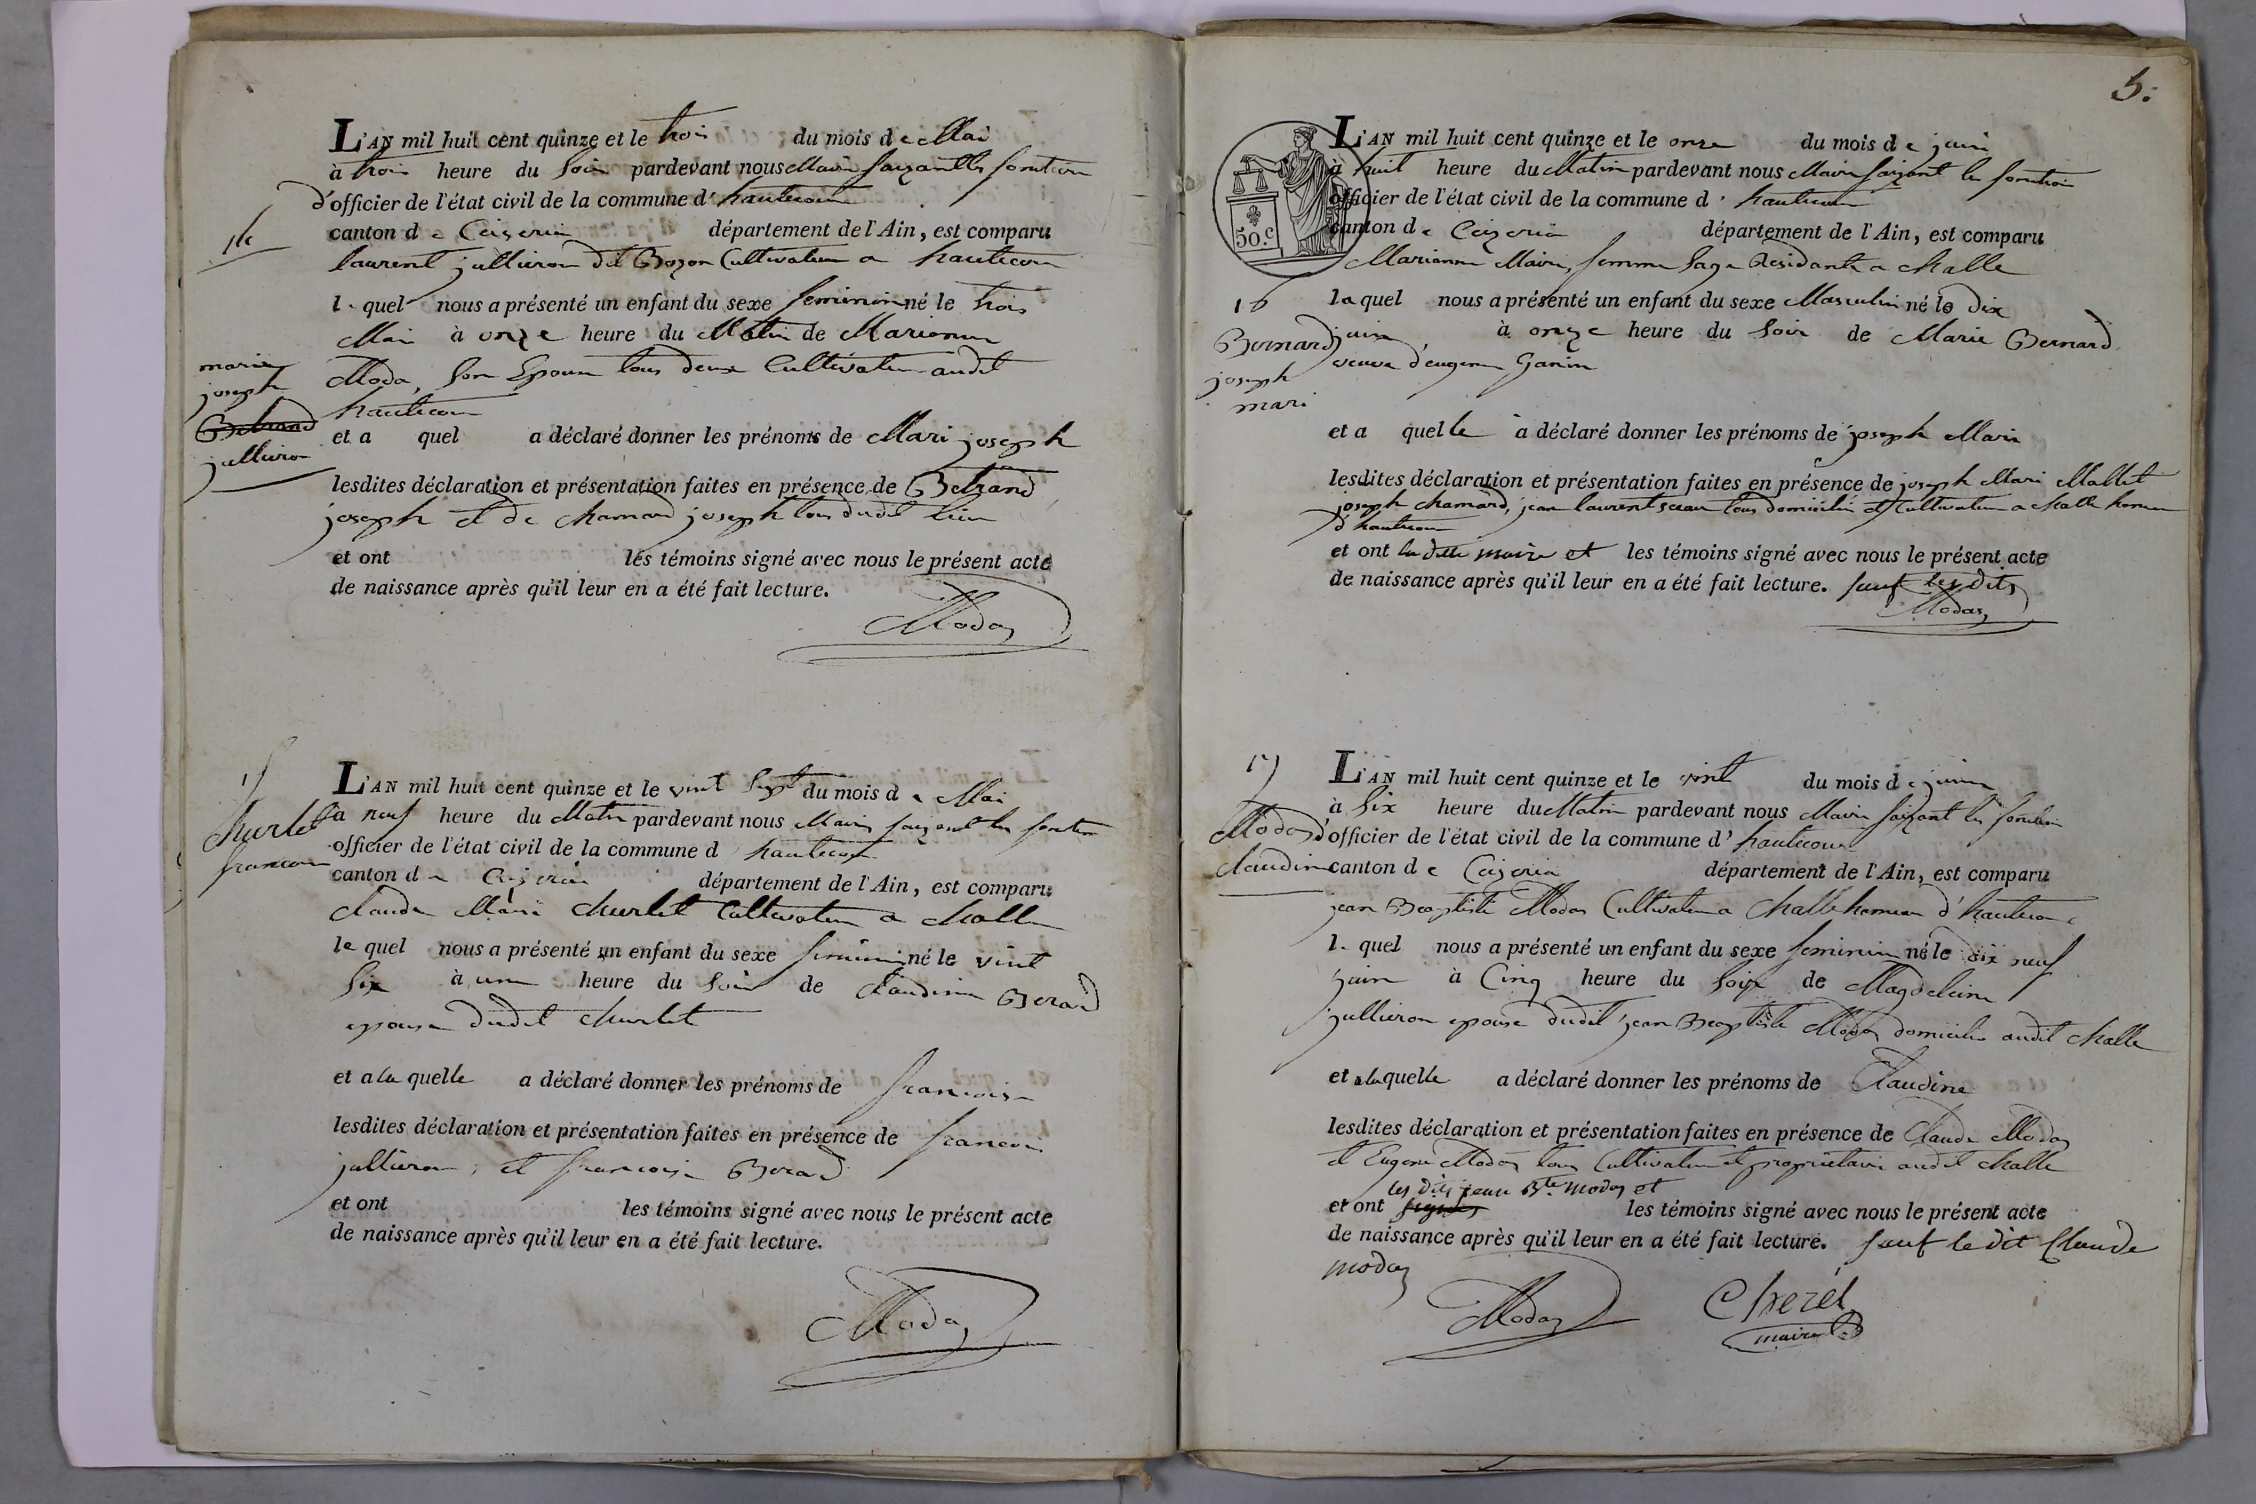 14
marie
joseph
Betrand
jullieron
L'AN mil huit cent quinze et le trois du mois de Mai
à trois heure du Soir pardevant nous Maire faizant les fonction
d'officier de l'état civil de la commune d'hautecour
canton de Ceizeria département de l'Ain, est comparu
laurent jullieron dit Bozon Cultivateur a hautecour
le quel nous a présenté un enfant du sexe feminin né le trois
Mai à onze heure du Matin de Marianne
Moda, Son Epouse tous deux Cultivateur audit
hautecour
et a quel a déclaré donner les prénoms de Mari joseph
lesdites déclaration et présentation faites en présence de Betrand
joseph et de chamard joseph tous dudit lieu
et ont les témoins signé avec nous le présent acte
de naissance après qu'il leur en a été fait lecture.
Modas
15
Churlet
francoise
L'AN mil huit cent quinze et le vint Sept du mois de Mai
à neuf heure du Matin pardevant nous Maire faizant les fonction
officier de l'état civil de la commune d hautecour
canton de Ceizeria département de l'Ain, est comparu
Claude Marie Churlet Cultivateur a Challe
le quel nous a présenté un enfant du sexe feminin né le vint
Six à une heure du Soir de Claudine Berard
epouse dudit Churlet
et a la quelle a déclaré donner les prénoms de francoise
lesdites déclaration et présentation faites en présence de francois
jullieron, et francoise Berard
et ont les témoins signé avec nous le présent acte
de naissance après qu'il leur en a été fait lecture.
Modas
5.
50.c
16
Bernard
joseph
mari
L'AN mil huit cent quinze et le onze du mois de juin
à huit heure du Matin pardevant nous Maire faizant les fonction
officier de l'état civil de la commune d' hautecour
canton de Ceizeria département de l'Ain, est comparu
Marianne Maire, femme Sage Residante a Challe
la quel nous a présenté un enfant du sexe Masculin né le dix
juin à onze heure du Soir de Marie Bernard
veuve d'eugene Ganin
et a quelle a déclaré donner les prénoms de joseph Mari
lesdites déclaration et présentation faites en présence de joseph Mari Mallet
joseph chamard, jean laurent tous domicilié et Cultivateur a Challe hameau
d'hautecour
et ont la dite maire et les témoins signé avec nous le présent acte
de naissance après qu'il leur en a été fait lecture. sauf les dits
Modas
17
Modas
claudine
L'AN mil huit cent quinze et le vint du mois de juin
à Six heure du Matin pardevant nous Maire faizant les fonction
d'officier de l'état civil de la commune d'hautecour
canton de Ceizeria département de l'Ain, est comparu
jean Baptiste Modas Cultivateur a Challe hameau d'hautecour
le quel nous a présenté un enfant du sexe feminin né le dix neuf
juin à Cinq heure du Soir de Magdeleine
jullieron epouse dudit jean Baptiste Modas domicilié audit Challe
et a la quelle a déclaré donner les prénoms de Claudine
lesdites déclaration et présentation faites en présence de Claude Modas
et Eugene Modas tous Cultivateur et propriétaire audit Challe
les dits jean Bte. modas et
et ont signés les témoins signé avec nous le présent acte
de naissance après qu'il leur en a été fait lecture. sauf le dit Claude
modas
Modas
Chezel
maire